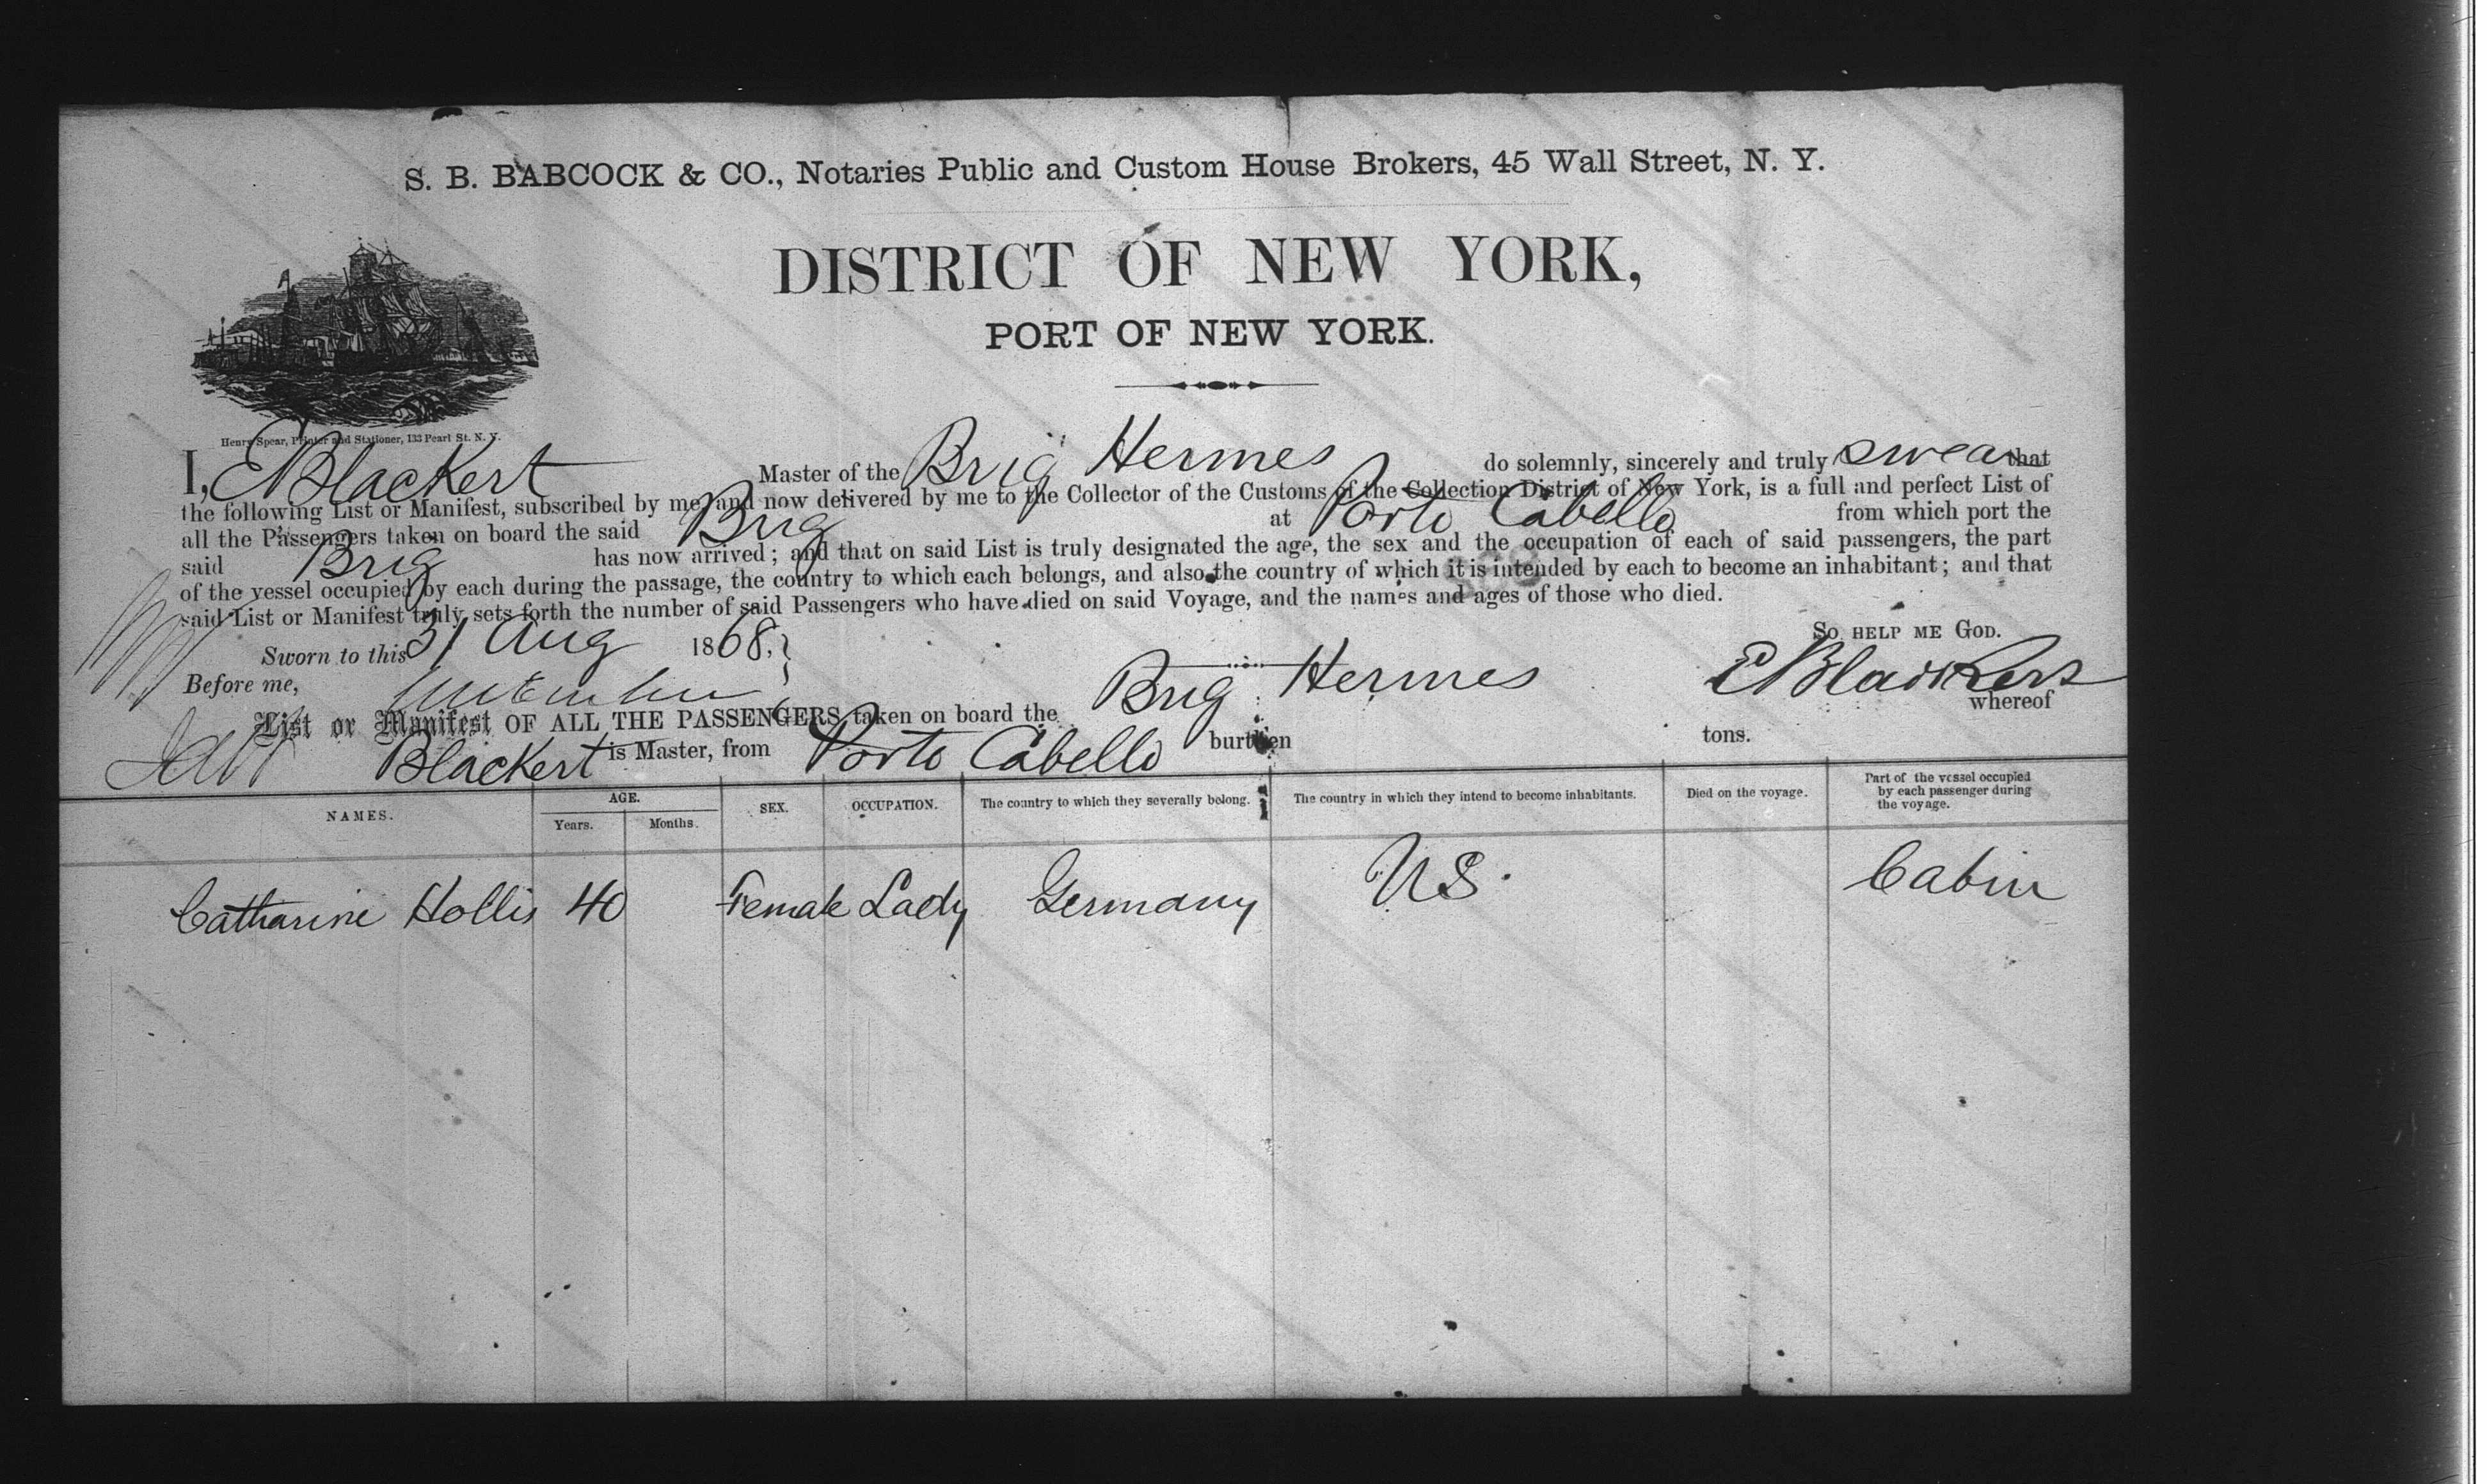 S. B. BABCOCK & CO., Notaries Public and Custom House Brokers, 45 Wall Street, N. Y.
DISTRICT OF NEW YORK,
PORT OF NEW YORK.
Henry Spear, Printer and Stationer, 133 Pearl St. N. Y.
I, E Blackert Master of the Brig Hermes do solemnly, sincerely and truly swear that
the following List or Manifest, subscribed by me, and now delivered by me to the Collector of the Customs of the Collection District of New York, is a full and perfect List of
all the Passengers taken on board the said Brig at Porto Cabello from which port the
said Brig has now arrived; and that on said List is truly designated the age, the sex and the occupation of each of said passengers, the part
of the vessel occupied by each during the passage, the country to which each belongs, and also the country of which it is intended by each to become an inhabitant; and that
said List or Manifest truly sets forth the number of said Passengers who have died on said Voyage, and the names and ages of those who died.
SO HELP ME GOD.
Sworn to this 31 Aug 1868.
Before me,
E Blackert
List or Manifest OF ALL THE PASSENGERS taken on board the Brig Hermes whereof
Blackert is Master, from Porto Cabello burthen tons.
NAMES. AGE. Years. Months. SEX. OCCUPATION. The country to which they severally belong. The country in which they intend to become inhabitants. Died on the voyage. Part of the vessel occupied by each passenger during the voyage.
Catharine Hollis 40 Female Lady Germany US. Cabin